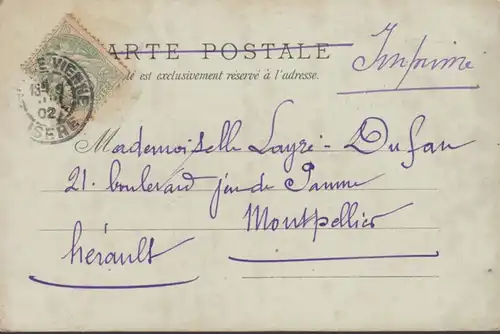 CARTE POSTALE
Imprimé
té est exclusivement réservé à l'adresse.
VIENNE
02
ISERE
Mademoiselle Layre-Dufau
21. boulevard jeu de Paume
Montpellier
hérault